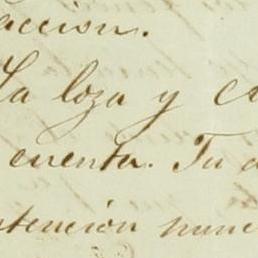 accion.
La loza y c
cuenta. Tu
ntención nunc